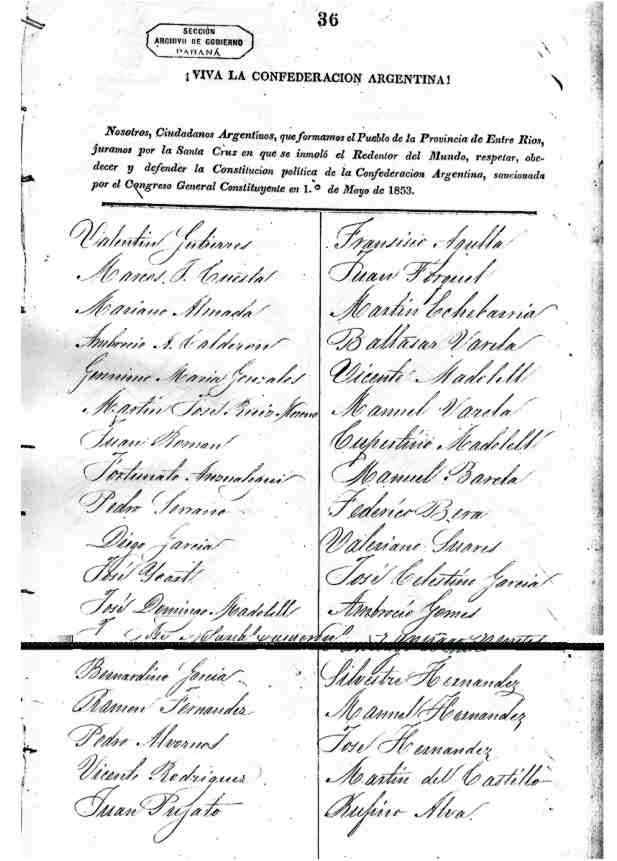 36
SECCIÓN
ARCHIVO DE GOBIERNO
PARANÁ
¡VIVA LA CONFEDERACION ARGENTINA!
Nosotros, Ciudadanos Argentinos, que formamos el Pueblo de la Provincia de Entre Rios,
juramos por la Santa Cruz en que se inmoló el Redentor del Mundo, respetar, obe-
decer y defender la Constitucion política de la Confederacion Argentina, sancionada
por el Congreso General Constituyente en 1.º de Mayo de 1853.
Valentin Gutierres
Marcos J. Cuesta
Mariano Almada
Ambrocio A. Calderon
Geronimo Maria Gonzales
Martin José Moreno
Juan Roman
Fortunato
Pedro Serrano
Diego Garcia
José
José Domingo Madolell
Bernardino Garcia
Ramon Fernandez
Pedro Alvornos
Vicente Rodriguez
Juan
Fransisco Aquilla
Juan
Martin Echebarria
Baltasar Varela
Vicente Madolell
Manuel Varela
Cupertino Madolell
Manuel Barela
Federico Bera
Valeriano Suares
José Celestino Garcia
Ambrocio Gomes
Silvestre Hernandez
Manuel Hernandez
José Hernandez
Martin del Castillo
Rufino Alva